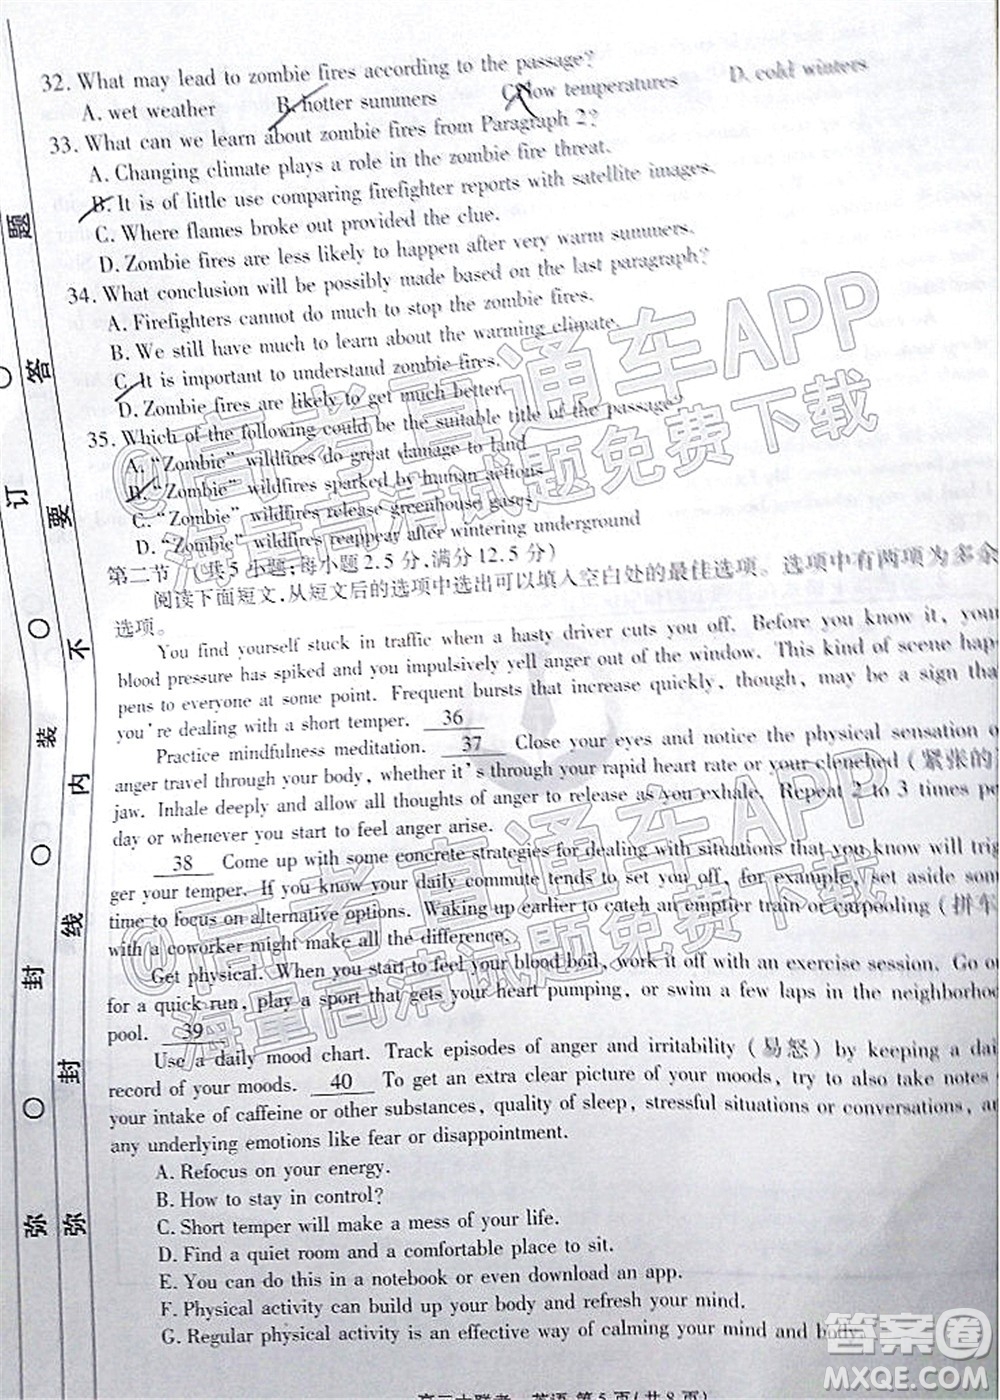 32. What may lead to zombie fires according to the passage?
A. wet weather B. hotter summers C. low temperatures D. cold winters
33. What can we learn about zombie fires from Paragraph 2?
A. Changing climate plays a role in the zombie fire threat.
B. It is of little use comparing firefighter reports with satellite images.
C. Where flames broke out provided the clue.
D. Zombie fires are less likely to happen after very warm summers.
34. What conclusion will be possibly made based on the last paragraph?
A. Firefighters cannot do much to stop the zombie fires.
B. We still have much to learn about the warming climate.
C. It is important to understand zombie fires.
D. Zombie fires are likely to get much better.
35. Which of the following could be the suitable title of the passage?
A. "Zombie" wildfires do great damage to land
B. "Zombie" wildfires sparked by human actions
C. "Zombie" wildfires release greenhouse gases
D. "Zombie" wildfires reappear after wintering underground
第二节 (共5小题;每小题2.5分,满分12.5分)
阅读下面短文,从短文后的选项中选出可以填入空白处的最佳选项。选项中有两项为多余
选项。
You find yourself stuck in traffic when a hasty driver cuts you off. Before you know it, your
blood pressure has spiked and you impulsively yell anger out of the window. This kind of scene hap
pens to everyone at some point. Frequent bursts that increase quickly, though, may be a sign tha
you're dealing with a short temper. 36
Practice mindfulness meditation. 37 Close your eyes and notice the physical sensation o
anger travel through your body, whether it's through your rapid heart rate or your clenched (紧张的)
jaw. Inhale deeply and allow all thoughts of anger to release as you exhale. Repeat 2 to 3 times pe
day or whenever you start to feel anger arise.
38 Come up with some concrete strategies for dealing with situations that you know will trig
ger your temper. If you know your daily commute tends to set you off, for example, set aside som
time to focus on alternative options. Waking up earlier to catch an emptier train or carpooling (拼车
with a coworker might make all the difference.
Get physical. When you start to feel your blood boil, work it off with an exercise session. Go o
for a quick run, play a sport that gets your heart pumping, or swim a few laps in the neighborhoo
pool. 39
Use a daily mood chart. Track episodes of anger and irritability (易怒) by keeping a dai
record of your moods. 40 To get an extra clear picture of your moods, try to also take notes
your intake of caffeine or other substances, quality of sleep, stressful situations or conversations, an
any underlying emotions like fear or disappointment.
A. Refocus on your energy.
B. How to stay in control?
C. Short temper will make a mess of your life.
D. Find a quiet room and a comfortable place to sit.
E. You can do this in a notebook or even download an app.
F. Physical activity can build up your body and refresh your mind.
G. Regular physical activity is an effective way of calming your mind and body.
高三大联考 英语 第5页(共8页)
题
答
要
不
内
线
封
弥
订
装
封
弥
@高考直通车APP
海量高清试题免费下载
@高考直通车APP
海量高清试题免费下载
答案圈
MXQE.COM